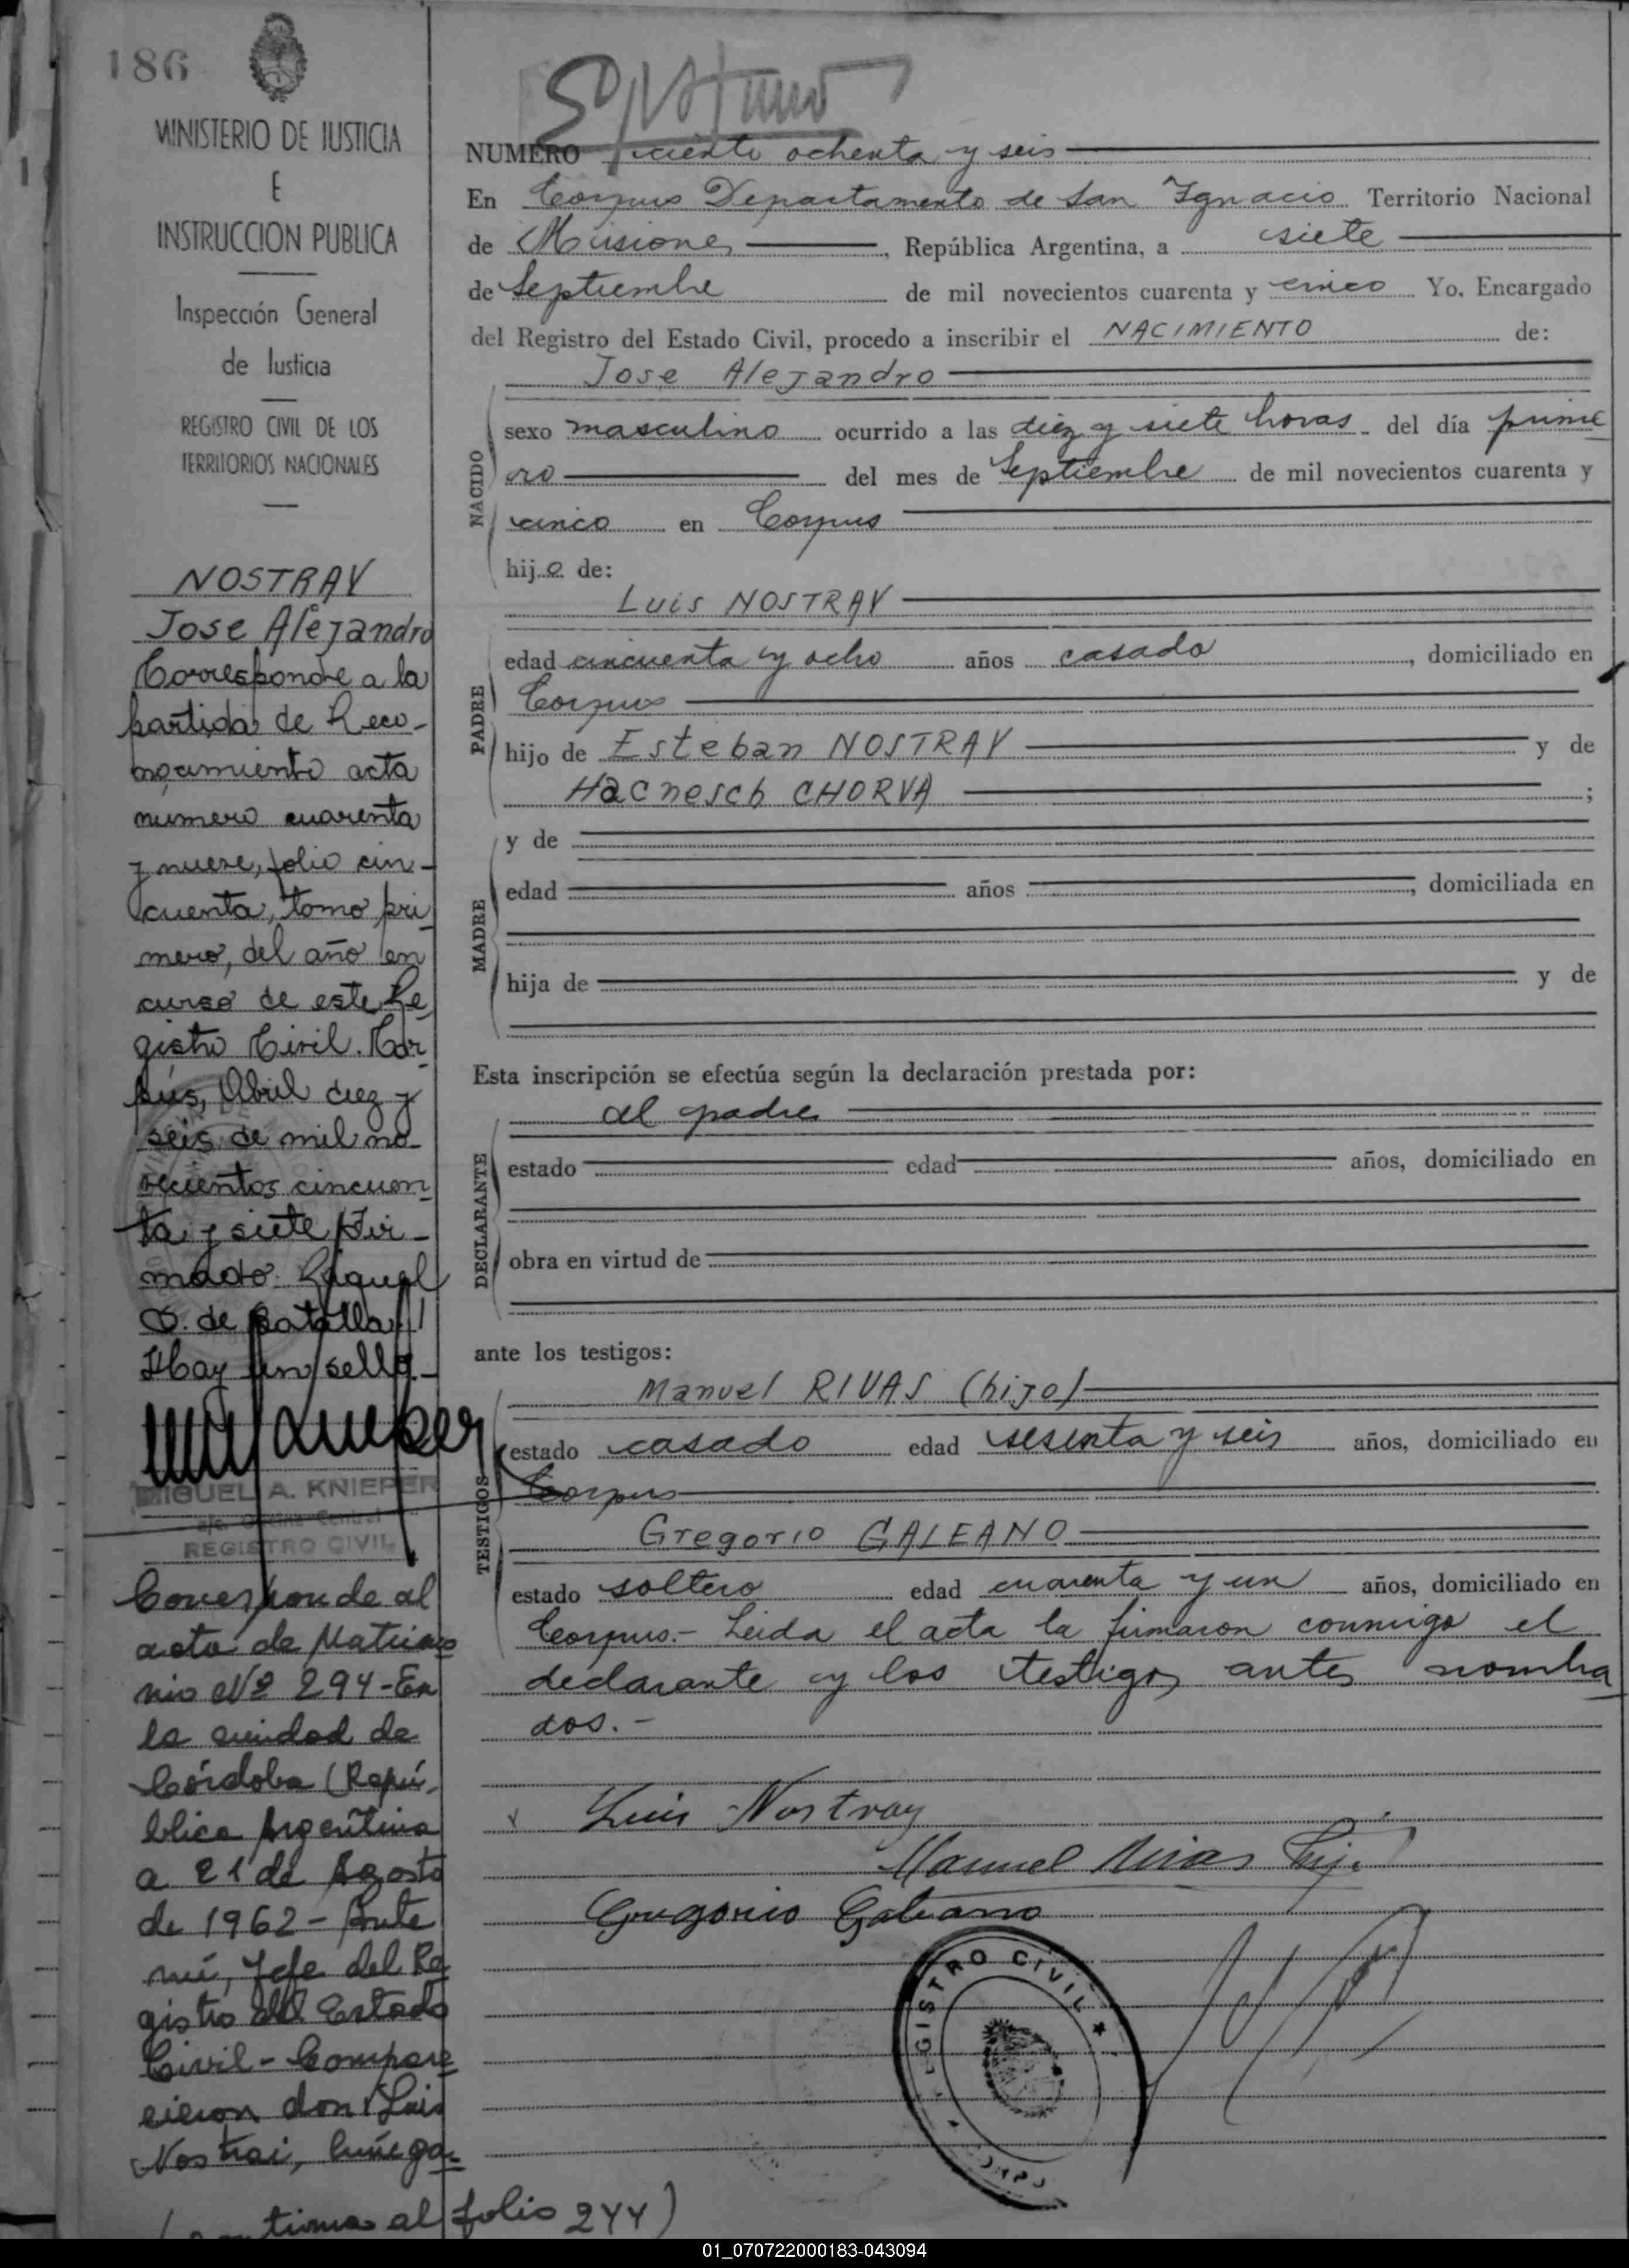 186
MINISTERIO DE JUSTICIA
E
INSTRUCCION PUBLICA
Inspección General
de Justicia
REGISTRO CIVIL DE LOS
TERRITORIOS NACIONALES
NOSTRAY
Jose Alejandro
Corresponde a la
partida de Reco-
nocimiento acta
número cuarenta
y nueve, folio cin-
cuenta, tomo pri
mero, del año en
curso de este Re
gistro Civil. Cor
pus, Abril diez y
seis de mil no-
vecientos cincuen
ta y siete Fir-
mado: Raquel
de Batalla
Hay un sello.-
MIGUEL A. KNIEPER
Oficina Central
REGISTRO CIVIL
Corresponde al
acta de Matrimo
nio Nº 294-En
la ciudad de
Córdoba (Repú-
blica Argentina
a 21 de Agosto
de 1962- Ante
mí, Jefe del Re
gistro del Estado
Civil- Compare
cieron don Luis
Nostrai,
al folio 244)
NUMERO ciento ochenta y seis
En Corpus Departamento de San Ignacio Territorio Nacional
de Misiones, República Argentina, a siete
de Septiembre de mil novecientos cuarenta y cinco Yo, Encargado
del Registro del Estado Civil, procedo a inscribir el NACIMIENTO de:
Jose Alejandro
NACIDO
sexo masculino ocurrido a las diez y siete horas del día prime
ro del mes de Septiembre de mil novecientos cuarenta y
cinco en Corpus
hijo de:
PADRE
Luis NOSTRAY
edad cincuenta y ocho años casado, domiciliado en
Corpus
hijo de Esteban NOSTRAY y de
Hacnesch CHORVA ;
MADRE
y de
edad años , domiciliada en
hija de y de
Esta inscripción se efectúa según la declaración prestada por:
DECLARANTE
el padre
estado edad años, domiciliado en
obra en virtud de
ante los testigos:
TESTIGOS
Manuel RIVAS (hijo)
estado casado edad sesenta y seis años, domiciliado en
Corpus
Gregorio GALEANO
estado soltero edad cuarenta y un años, domiciliado en
Corpus.- Leida el acta la firmaron conmigo el
declarante y los testigos antes nombra
dos.-
Luis Nostray
Manuel Rivas hijo
Gregorio Galeano
REGISTRO CIVIL
01_070722000183-043094